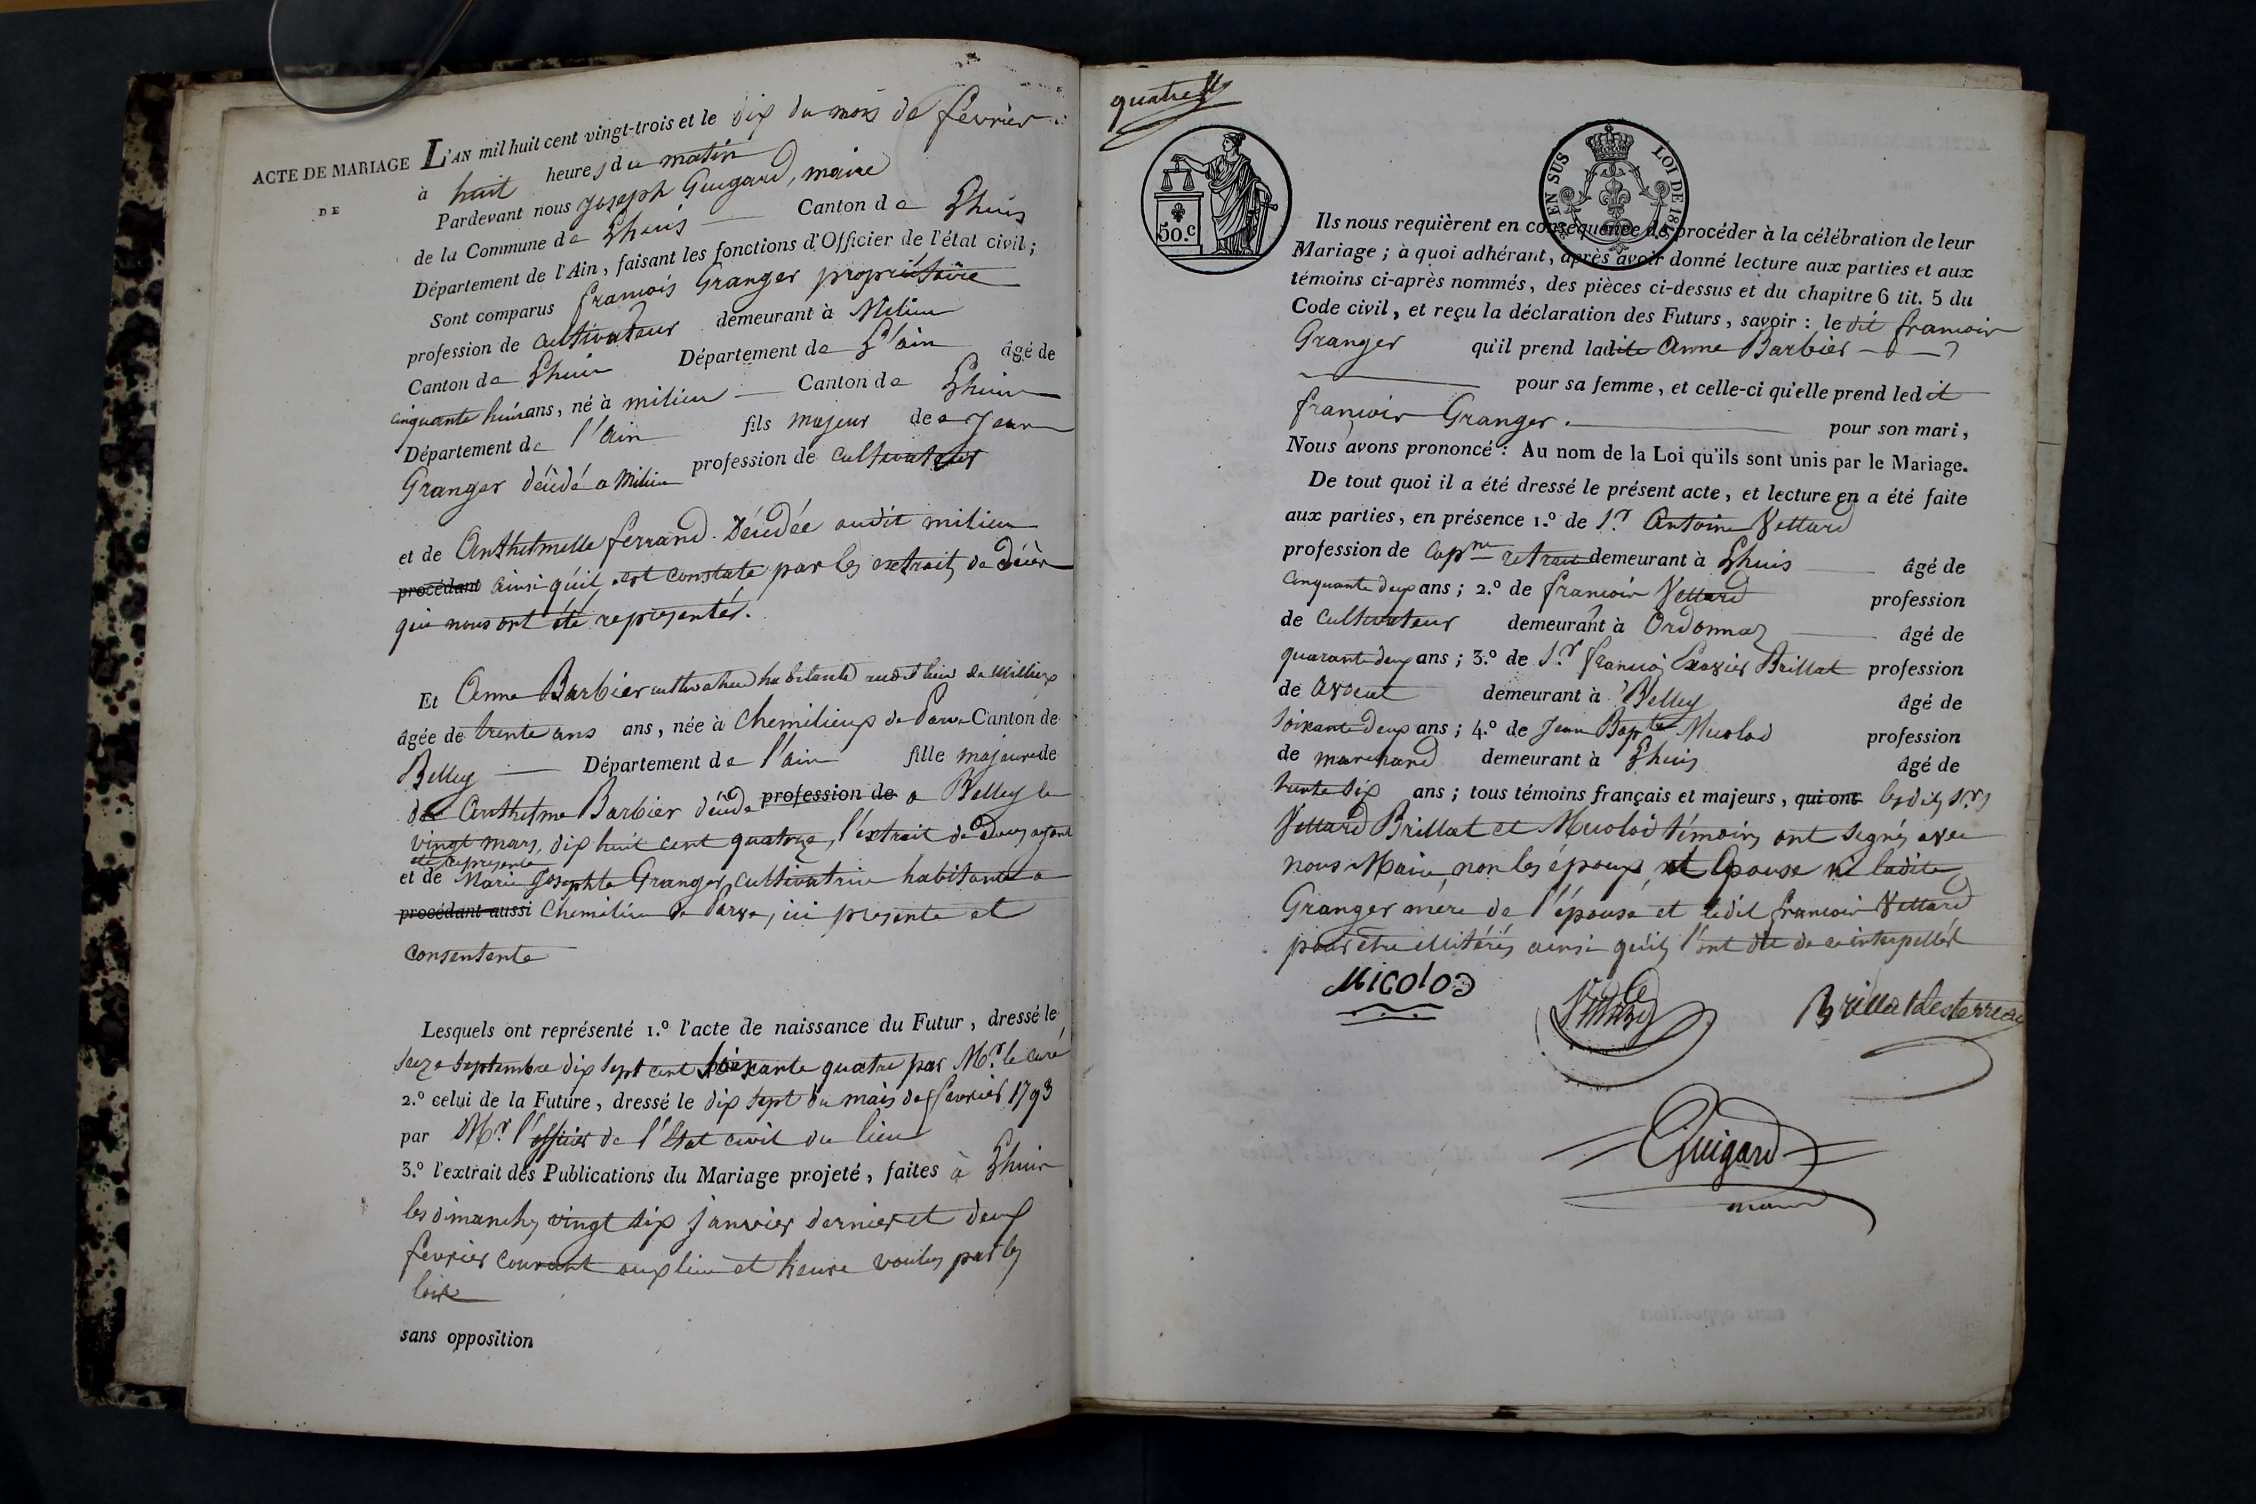 ACTE DE MARIAGE
DE
L'AN mil huit cent vingt-trois et le dix du mois de fevrier
à huit heures du matin
Pardevant nous Joseph Guigard, maire
de la Commune de Lhuis Canton de Lhuis
Département de l'Ain, faisant les fonctions d'Officier de l'état civil;
Sont comparus francois Granger propriétaire
profession de cultivateur demeurant à Milieu
Canton de Lhuis Département de L'ain âgé de
cinquante huit ans, né à milieu Canton de Lhuis
Département de l'ain fils majeur de Jean
Granger décédé a Milieu profession de cultivateur
et de Anthelmelle ferrand. Décédée audit milieu
procédant ainsi qu'il est constaté par les extraits de décès
qui nous ont été representés.
Et Anne Barbier cultivatrice habitante audit lieu de Millieux
âgée de trente ans ans, née à Chemilieux de Parve Canton de
Belley Département de l'ain fille majeure de
de Anthelme Barbier décédé profession de a Belley le
vingt mars, dix huit cent quatorze, l'extrait de décès ayant
été représenté
et de Marie Josephte Granger, cultivatrice habitante a
procédant aussi Chemilieu de Parve, ici presente et
consentente
Lesquels ont représenté 1.º l'acte de naissance du Futur, dressé le
seize septembre dix sept cent soixante quatre par Mr. le curé
2.º celui de la Future, dressé le dix sept du mois de fevrier 1793
par Mr. l'officier de l'Etat civil du lieu
3.º l'extrait des Publications du Mariage projeté, faites à Lhuis
les dimanches vingt six janvier dernier et deux
fevrier courant aux lieu et heure voulus par les
loix
sans opposition
quatre
50.C
EN SUS LOI DE 18
Ils nous requièrent en conséquence de procéder à la célébration de leur
Mariage; à quoi adhérant, après avoir donné lecture aux parties et aux
témoins ci-après nommés, des pièces ci-dessus et du chapitre 6 tit. 5 du
Code civil, et reçu la déclaration des Futurs, savoir: le dit francois
Granger qu'il prend ladite Anne Barbier
pour sa femme, et celle-ci qu'elle prend ledit
francois Granger. pour son mari,
Nous avons prononcé: Au nom de la Loi qu'ils sont unis par le Mariage.
De tout quoi il a été dressé le présent acte, et lecture en a été faite
aux parties, en présence 1.º de Sr. Antoine Vettard
profession de capne retraité demeurant à Lhuis âgé de
cinquante deux ans; 2.º de francois Vettard profession
de cultivateur demeurant à Ordonnaz âgé de
quarante deux ans; 3.º de Sr. francois Xavier Brillat profession
de avocat demeurant à Belley âgé de
soixante deux ans; 4.º de Jean Bapte Micolod profession
de marchand demeurant à Lhuis âgé de
trente six ans; tous témoins français et majeurs, qui ont lesdits Srs
Vettard Brillat et Micolod témoins ont signés avec
nous Maire, non les époux et épouse ni ladite
Granger mère de l'épouse et ledit francois Vettard
pour être illitérés ainsi qu'ils l'ont dit de ce interpellés
Micolod
Vettard
Brillat desterreaux
Guigard
maire